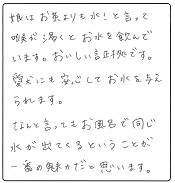 娘はお茶よりも水！と言って
喉が渇くとお水を飲んで
います。おいしい証拠です。
愛犬にも安心してお水を与え
られます。
なんと言ってもお風呂で同じ
水が出てくるということが
一番の魅力だと思います。